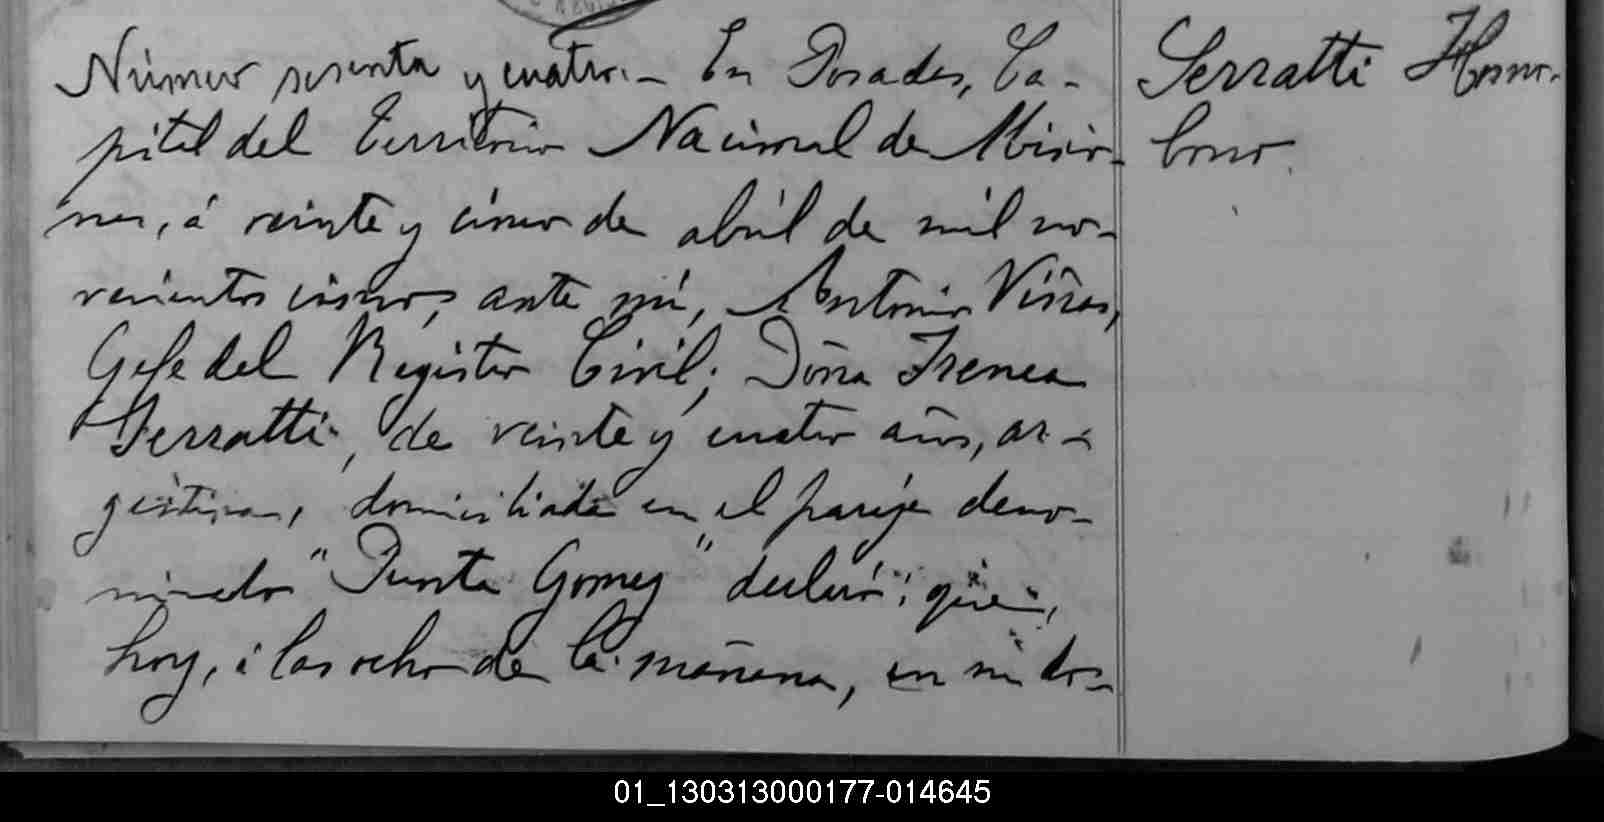 Número sesenta y cuatro.- En Posadas, Ca-
pital del Territorio Nacional de Misio-
nes, á veinte y cinco de abril de mil no-
vecientos cinco, ante mi, Antonio Viñas,
Gefe del Registro Civil; Doña Irenea
Serratti, de veinte y cuatro años, ar-
gentina, domiciliada en el paraje deno-
minado "Punta Gomez" declaró: que,
hoy, á las ocho de la mañana, en su do-
Serratti Homo-
bono.
01_130313000177-014645